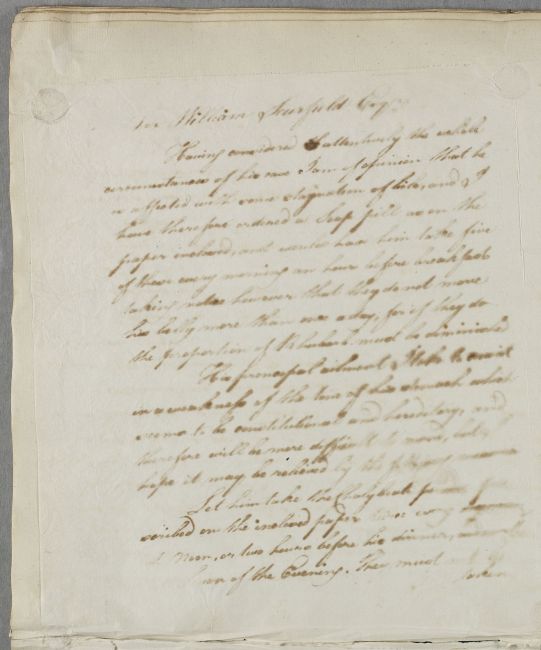 for William Esqr
Having considered attentively the whole
circumstances of his case I am of opinion that he
is affected with some stagnation of bile, and I
have therefore ordered a Soap pill as on the
paper inclosed, and would have him take five
of these every morning an hour before breakfast
taking notice however that they do not move
his belly more than once a day, for if they do
the proportion of Rhubarb must be diminished
His principal ailment I take to consist
in a weakness of the tone of his stomach which
seems to be constitutional and hereditary, and
therefore will be more difficult to move, but I
hope it may be relieved by the
Let him take the Chalybeat
scribed on the inclosed paper every
noon, or two hours before his dinner,
of the Evening. They must
taken